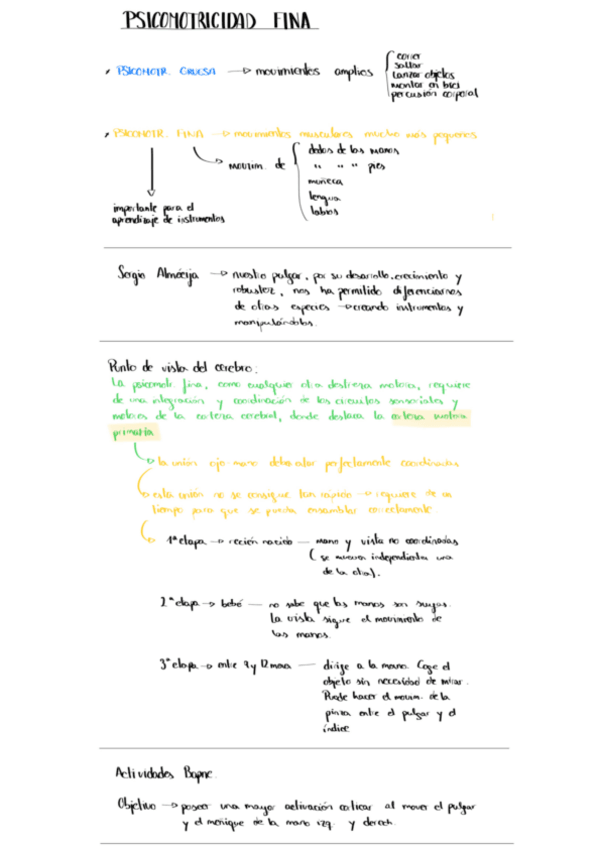 PSICOMOTRICIDAD FINA
PSICOMOTR. GRUESA → movimientos amplios
correr
saltar
lanzar objetos
montar en bici
percusión corporal
PSICOMOTR. FINA → movimientos musculares mucho más pequeños
movim. de
dedos de las manos
" " " pies
muñeca
lengua
labios
importante para el
aprendizaje de instrumentos
Sergio Almécija → nuestro pulgar, por su desarrollo, crecimiento y
robustez, nos ha permitido diferenciarnos
de otras especies → creando instrumentos y
manipulándolos.
Punto de vista del cerebro:
La psicomotr. fina, como cualquier otra destreza motora, requiere
de una integración y coordinación de los circuitos sensoriales y
motores de la corteza cerebral, donde destaca la corteza motora
primaria
la unión ojo-mano debe estar perfectamente coordinadas
esta unión no se consigue tan rápido → requiere de un
tiempo para que se pueda ensamblar correctamente
1ª etapa → recién nacido — mano y vista no coordinadas
(se mueven independientes una
de la otra).
2ª etapa → bebé — no sabe que las manos son suyas.
La vista sigue el movimiento de
las manos.
3ª etapa → entre 9 y 12 meses — dirige a la mano. Coge el
objeto sin necesidad de mirar.
Puede hacer el movim. de la
pinza entre el pulgar y el
índice
Actividades Bapne
Objetivo → poseer una mayor activación cortical al mover el pulgar
y el meñique de la mano izq. y derech.